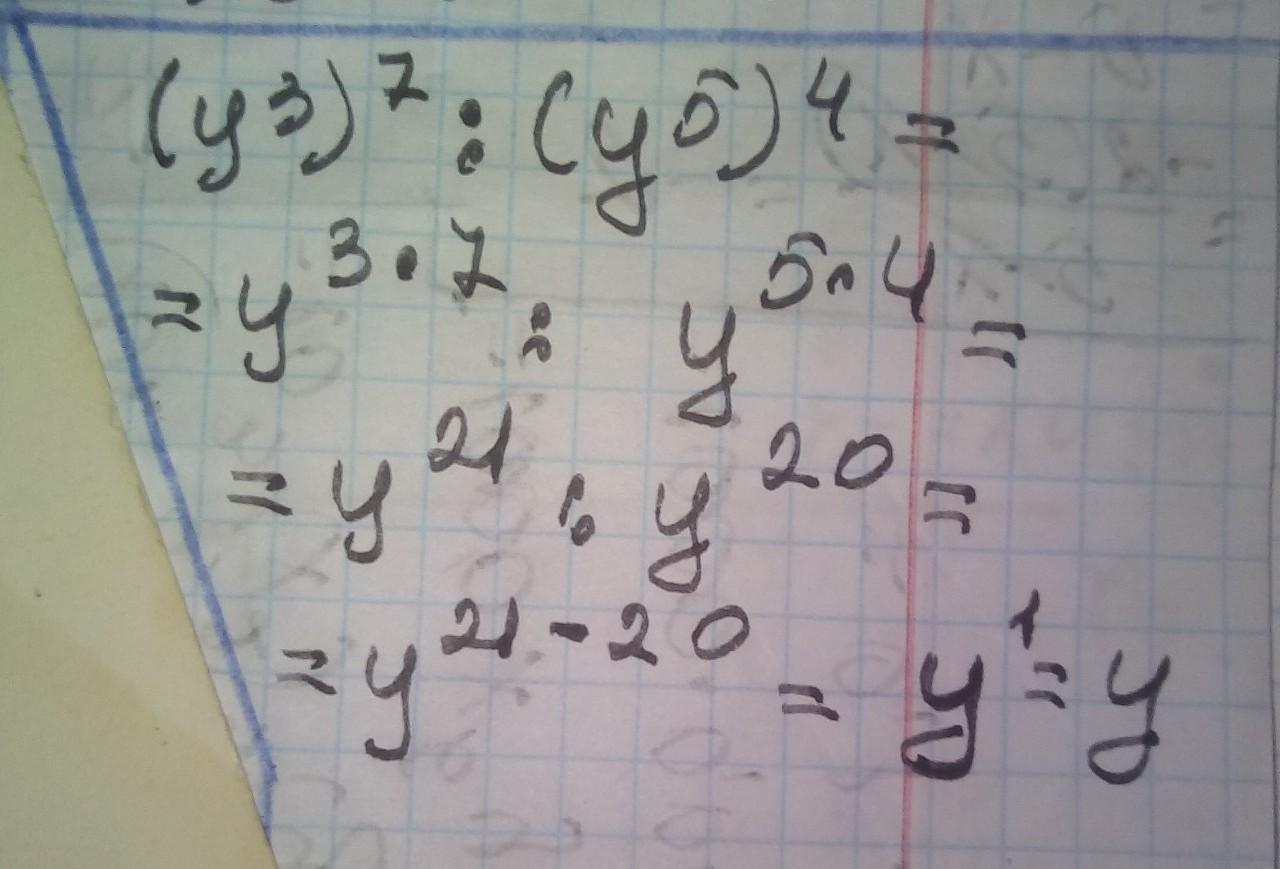 (y3)⁷ : (y5)⁴ =
= y³·⁷ : y⁵·⁴ =
= y²¹ : y²⁰ =
= y²¹⁻²⁰ = y¹ = y